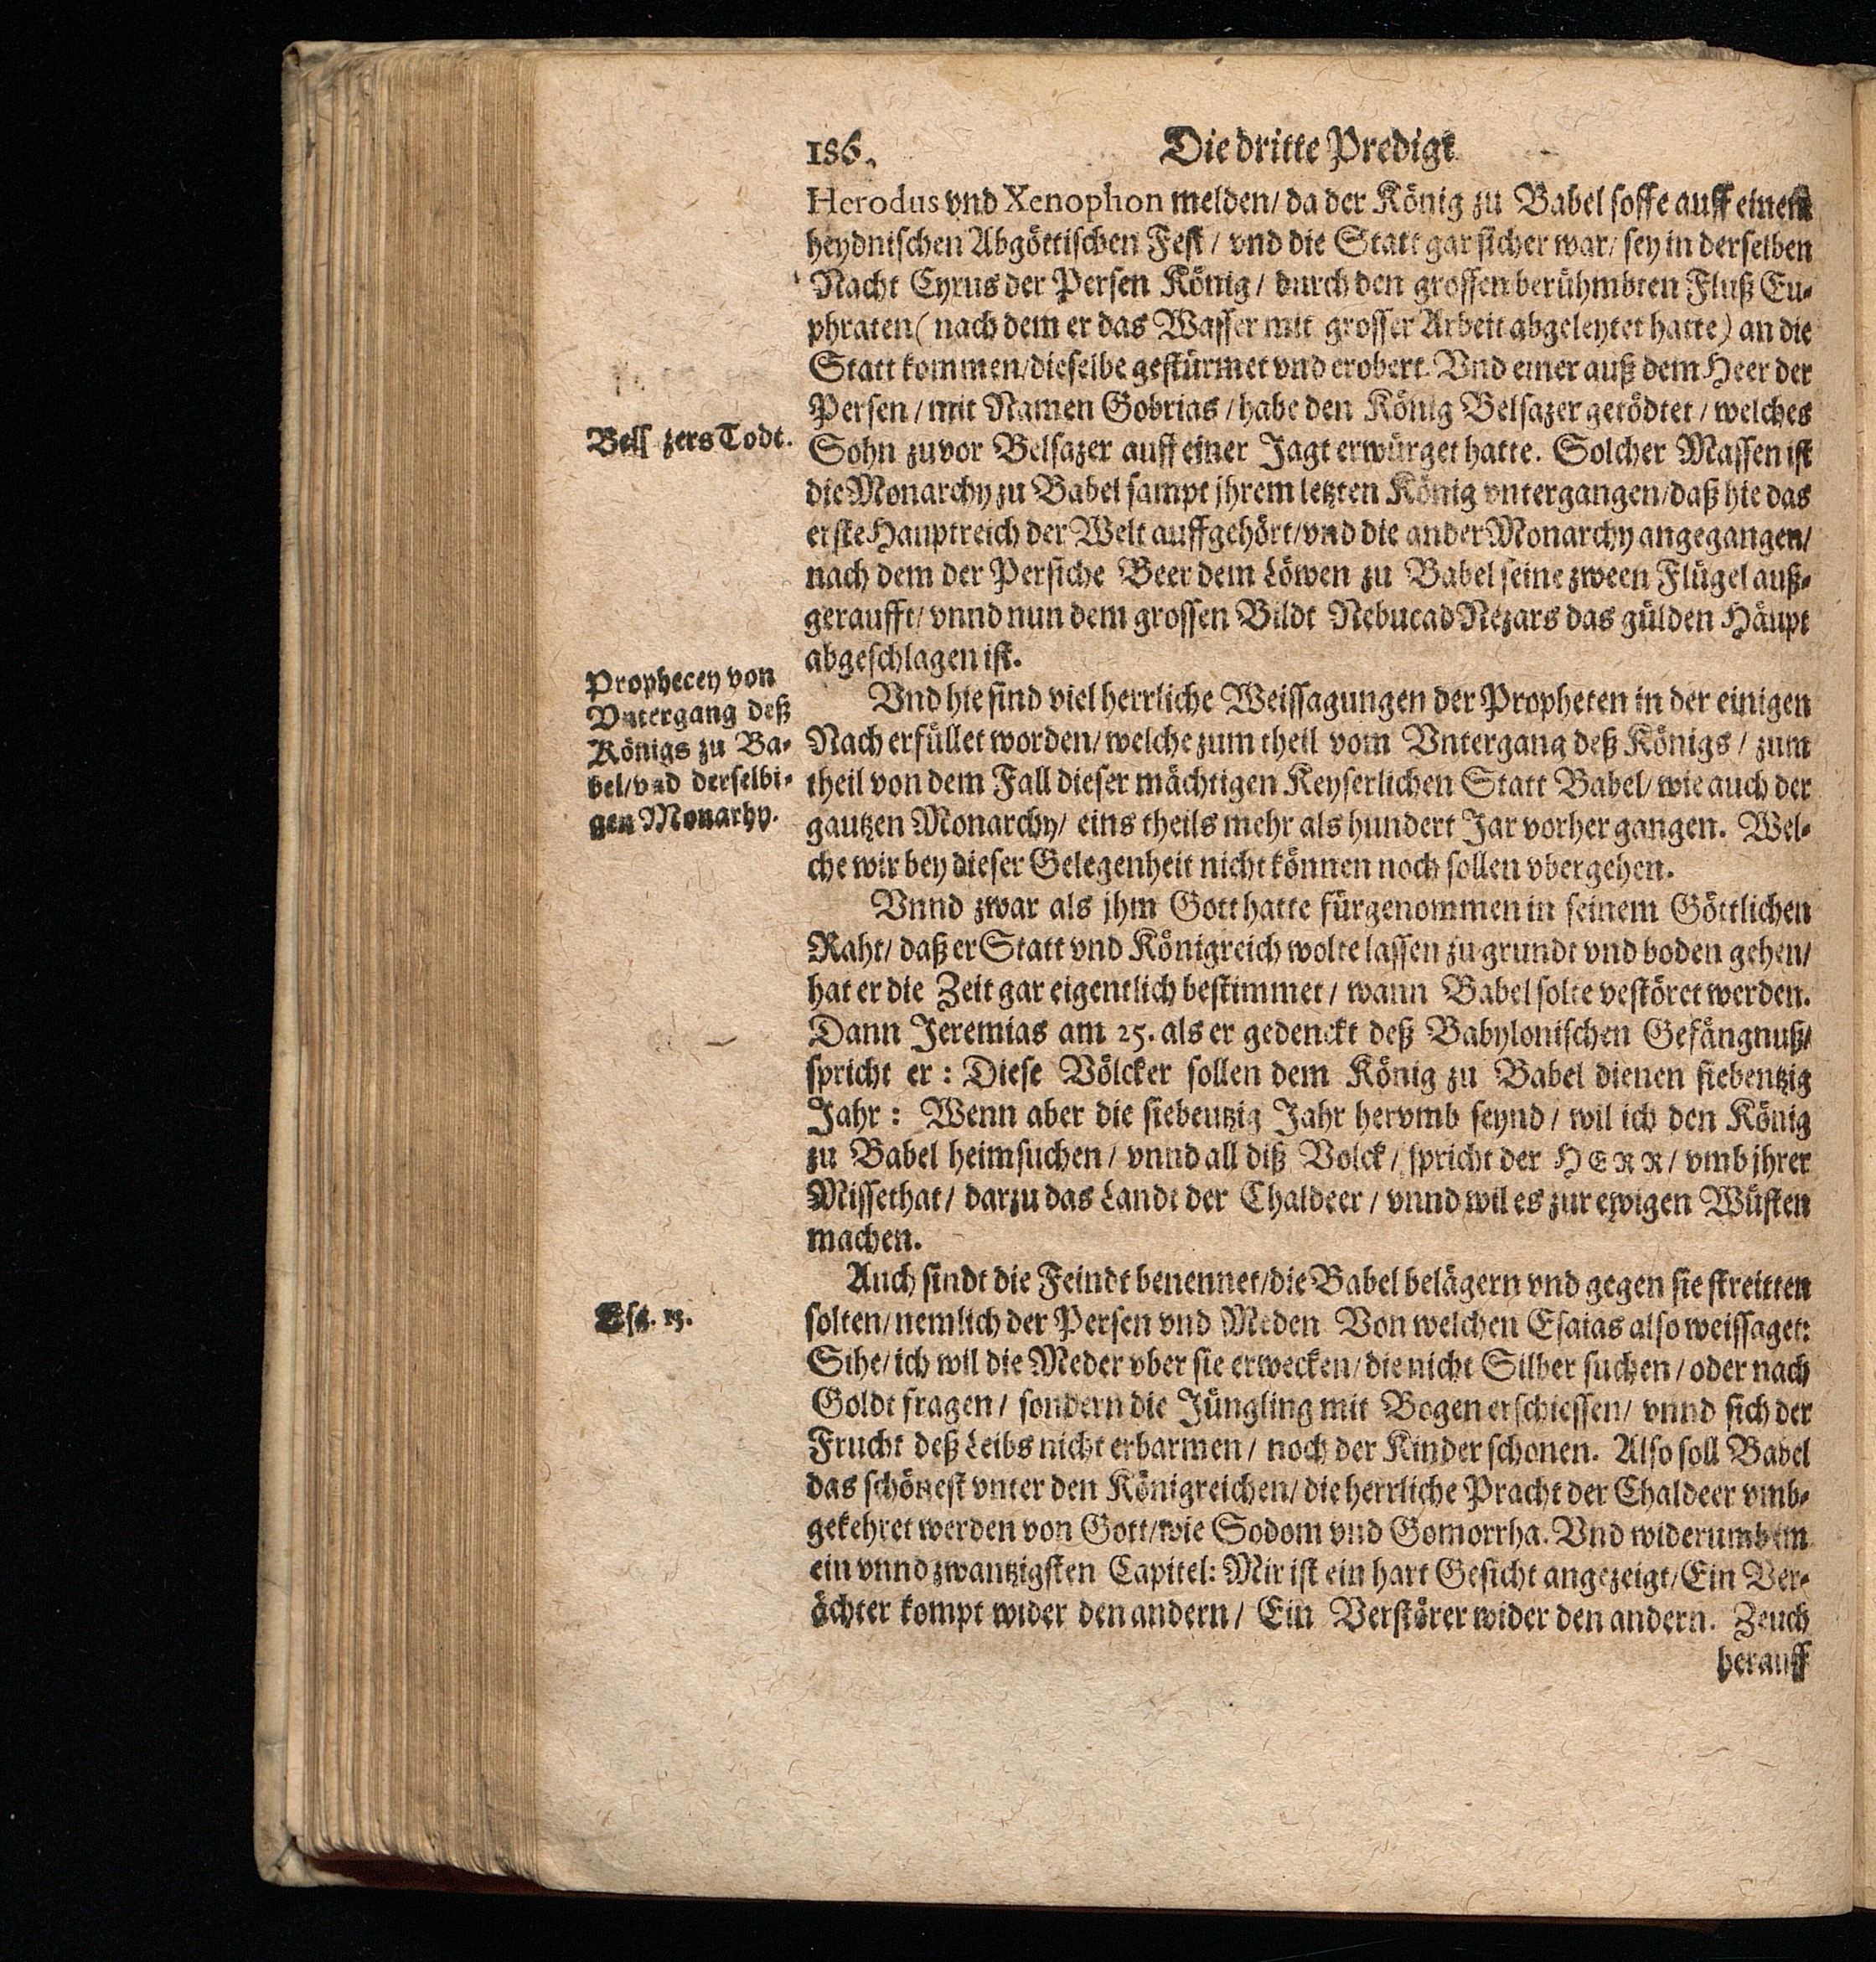 186.
Die dritte Predigt
Herodus vnd Xenophon melden/ da der König zu Babel soffe auff einem
heydnischen Abgöttischen Fest / vnd die Statt gar sicher war/ sey in derselben
Nacht Cyrus der Persen König / durch den grossen berühmbten Fluß Eu-
phraten ( nach dem er das Wasser mit grosser Arbeit abgeleytet hatte ) an die
Statt kommen/dieselbe gestürmet vnd erobert. Vnd einer auß dem Heer der
Persen / mit Namen Gobrias / habe den König Belsazer getödtet / welches
Bels zers Todt.
Sohn zuvor Belsazer auff einer Jagt erwürget hatte. Solcher Massen ist
die Monarchy zu Babel sampt jhrem letzten König vntergangen/daß hie das
erste Hauptreich der Welt auffgehört/vnd die ander Monarchy angegangen/
nach dem der Persiche Beer dem Löwen zu Babel seine zween Flügel auß-
geraufft/ vnnd nun dem grossen Bildt NebucadNezars das gülden Häupt
abgeschlagen ist.
Prophecey von
Vntergang deß
Königs zu Ba-
bel/vnd derselbi-
gen Monarhy.
Vnd hie sind viel herrliche Weissagungen der Propheten in der einigen
Nach erfüllet worden/ welche zum theil vom Vntergang deß Königs / zum
theil von dem Fall dieser mächtigen Keyserlichen Statt Babel/ wie auch der
gautzen Monarchy/ eins theils mehr als hundert Jar vorher gangen. Wel-
che wir bey dieser Gelegenheit nicht können noch sollen vbergehen.
Vnnd zwar als jhm Gott hatte fürgenommen in seinem Göttlichen
Raht/ daß er Statt vnd Königreich wolte lassen zu grundt vnd boden gehen/
hat er die Zeit gar eigentlich bestimmet / wann Babel solte vestöret werden.
Dann Jeremias am 25. als er gedenckt deß Babylonischen Gefängnuß/
spricht er : Diese Völcker sollen dem König zu Babel dienen siebentzig
Jahr : Wenn aber die siebeutzig Jahr hervmb seynd / wil ich den König
zu Babel heimsuchen / vnnd all diß Volck / spricht der HERR / vmb jhrer
Missethat / darzu das Landt der Chaldeer / vnnd wil es zur ewigen Wüsten
machen.
Auch sindt die Feindt benennet/die Babel belägern vnd gegen sie streitten
Esa. 13.
solten/ nemlich der Persen vnd Meden Von welchen Esaias also weissaget:
Sihe/ ich wil die Meder vber sie erwecken/ die nicht Silber suchen / oder nach
Goldt fragen / sondern die Jüngling mit Bogen erschiessen/ vnnd sich der
Frucht deß Leibs nicht erbarmen / noch der Kinder schonen. Also soll Babel
das schönest vnter den Königreichen/ die herrliche Pracht der Chaldeer vmb-
gekehret werden von Gott/wie Sodom vnd Gomorrha. Vnd widerumb im
ein vnnd zwantzigsten Capitel: Mir ist ein hart Gesicht angezeigt/Ein Ver-
ächter kompt wider den andern / Ein Verstörer wider den andern. Zeuch
herauff